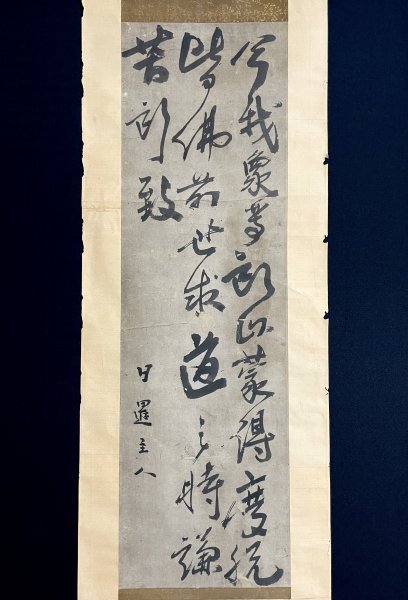 今我衆等所以蒙得度脱
皆佛前世求道之時謙
苦所致
主人